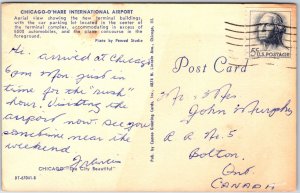 CHICAGO-O'HARE INTERNATIONAL AIRPORT
Aerial view showing the new terminal buildings,
with the car parking lot located in the center of
the terminal complex, accommodating in excess of
5500 automobiles, and the glass concourse in the
foreground.
Photo by Penrod Studio
Hi: arrived at Chicago
6pm Mon just in
time for the "rush"
hour. Visiting the
airport now. See you
sometime near the
weekend
Francis
CHICAGO "The City Beautiful"
DT-67041-B
Post Card
5¢ U.S. POSTAGE
Mr. & Mrs
John Murphy
R R No. 5
Bolton,
Ont.
CANADA